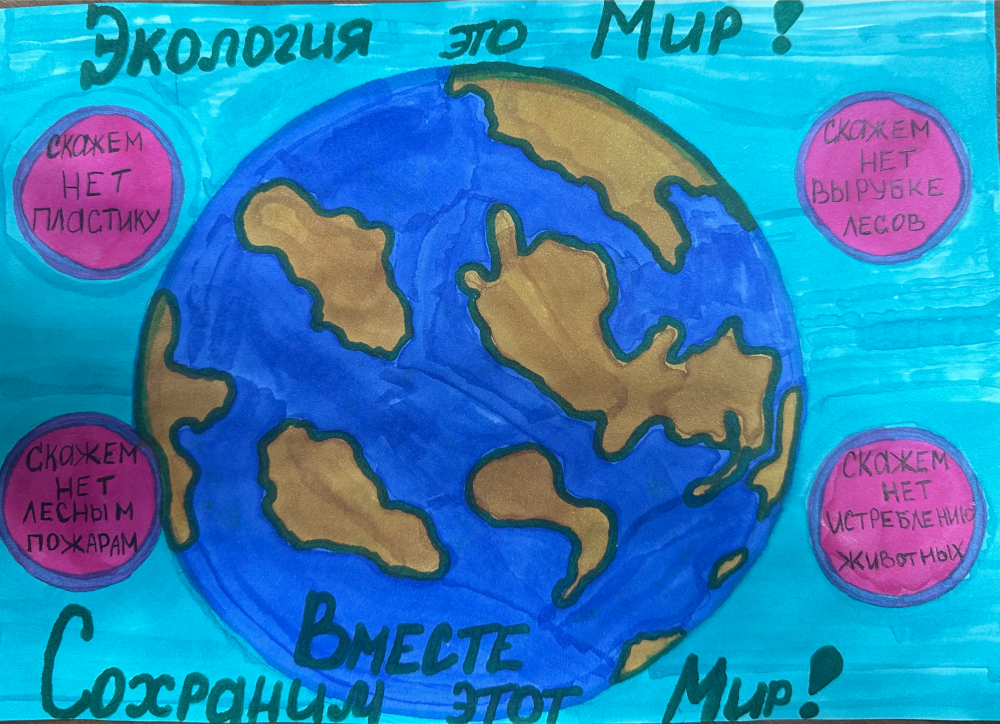 Экология это Мир!
СКАЖЕМ
НЕТ
ПЛАСТИКУ
СКАЖЕМ
НЕТ
ВЫРУБКЕ
ЛЕСОВ
СКАЖЕМ
НЕТ
ЛЕСНЫМ
ПОЖАРАМ
СКАЖЕМ
НЕТ
ИСТРЕБЛЕНИЮ
ЖИВОТНЫХ
ВМЕСТЕ
Сохраним этот Мир!